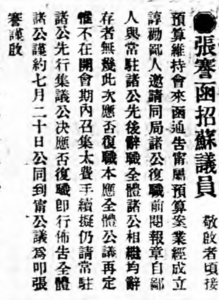 ●張謇函招蘇議員
敬啟者頃接
預算維持會來函通告甯屬預算案業經成立
諄勸鄙人邀請同局諸公復職前閱報章自鄙
人與常駐諸公先後辭職全體諸公相繼均辭
存者無幾此次應否復職本應全體公議再定
惟不在開會期內召集太費手續擬仍請常駐
諸公先行集議公決應否復職即行佈告全體
諸公謹約七月二十日公同到甯公議為叩張
謇謹啟